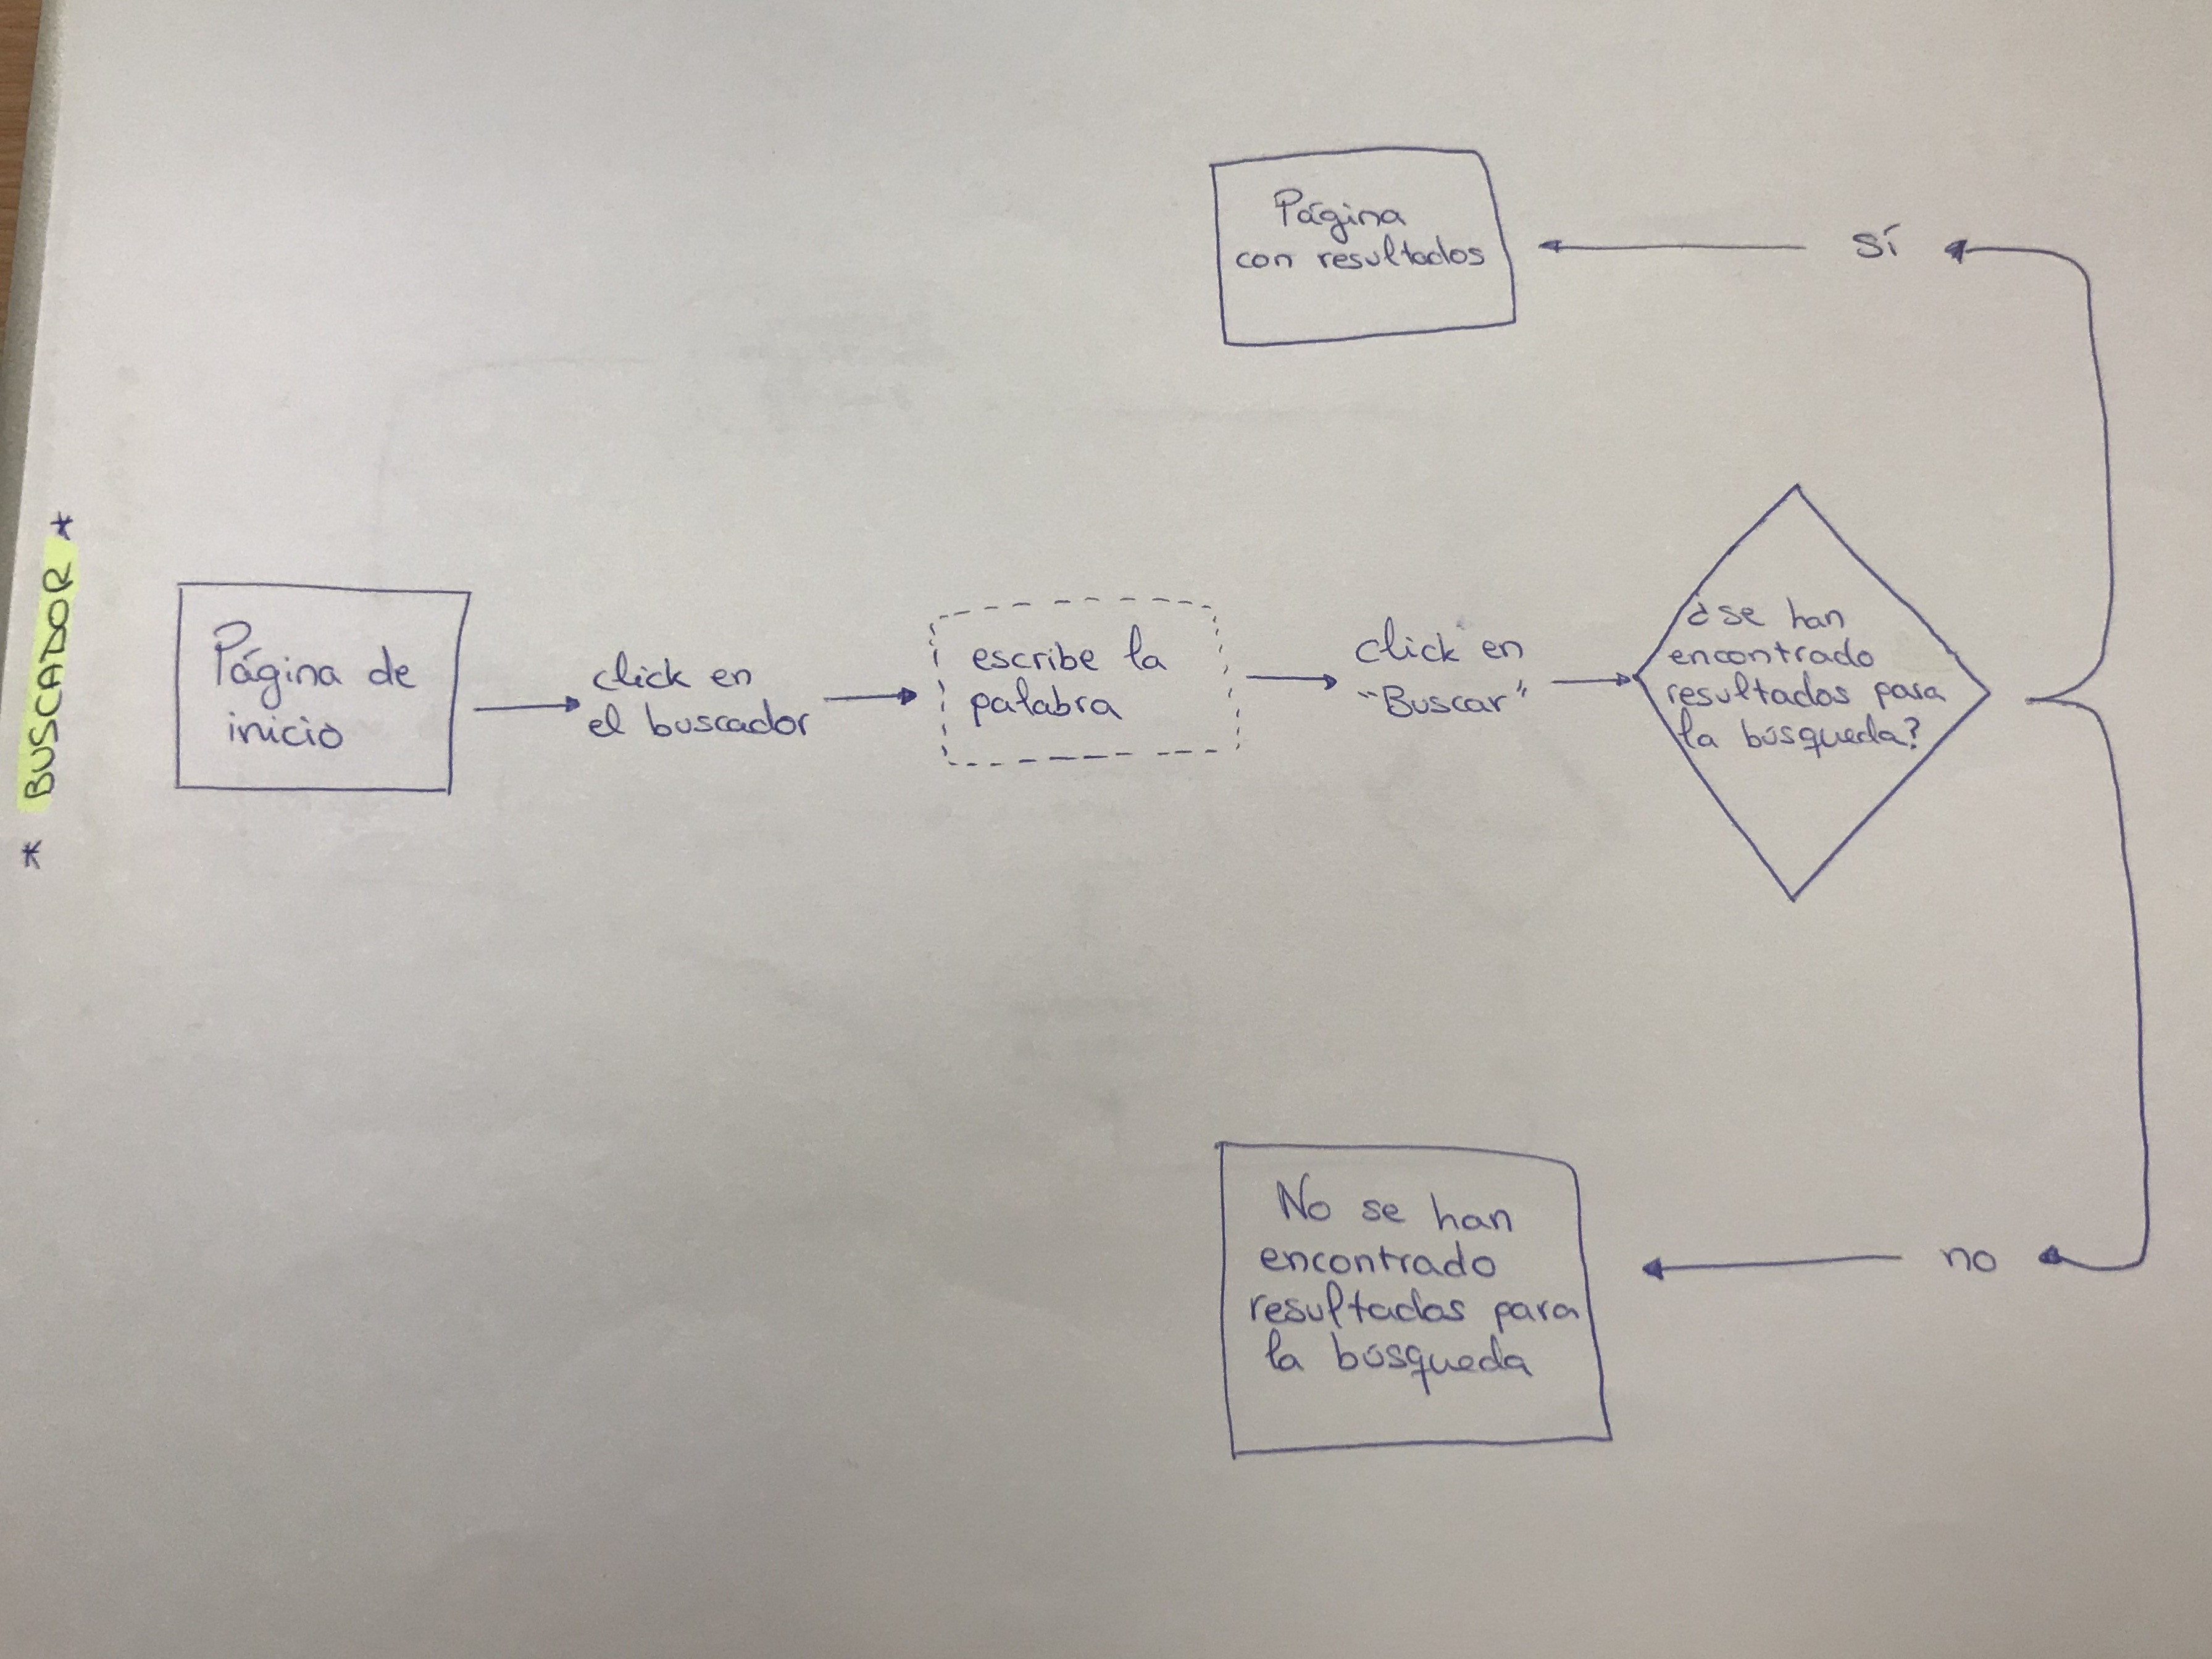 * BUSCADOR *
Página de
inicio
click en
el buscador
escribe la
palabra
click en
"Buscar"
¿se han
encontrado
resultados para
la búsqueda?
sí
Página
con resultados
no
No se han
encontrado
resultados para
la búsqueda